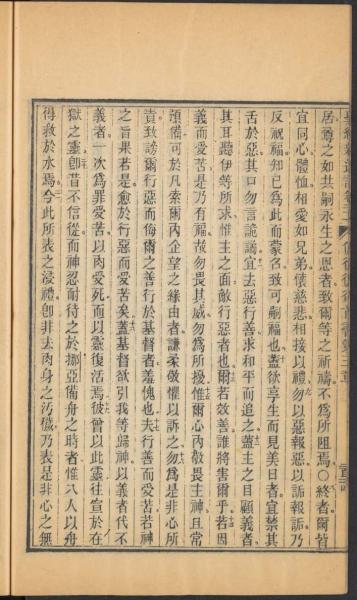 居尊之如共嗣永生之恩者致爾等之祈禱不為所阻焉○終者爾皆
宜同心體恤相愛如兄弟懷慈悲相接以禮勿以惡報惡以詬報詬乃
反祝福知已為此而蒙名致可嗣福也蓋欲享生而見美日者宜禁其
舌於惡其口勿言詭譎宜去惡行善求和平而追之蓋主之目顧義者
其耳聽伊等所求惟主之面敵行惡者也爾若效善誰將害爾乎若因
義而愛苦是乃有福故勿畏其威勿為所擾惟爾心內敬畏主神且常
預備可於凡索爾內企望之緣由者謙柔敬懼以訴之勿為是非心所
責致謗爾行惡而侮爾之善行於基督者羞愧也夫行善而受苦若神
之旨果若是愈於行惡而受苦矣蓋基督欲引我等歸神以義者代不
義者一次為罪受苦以肉受死而以靈復活焉彼曾以此靈往宣於在
獄之靈卽昔不信從而神忍耐待之於挪亞備舟之時者惟八人以舟
得救於水焉今此所表之浸禮卽非去肉身之污穢乃表是非心之無